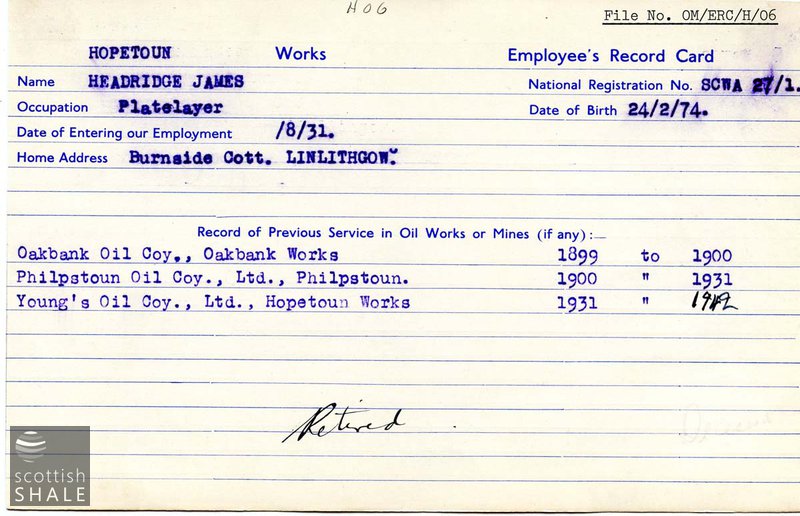 H06
File No. OM/ERC/H/06
HOPETOUN Works Employee's Record Card
Name HEADRIDGE JAMES National Registration No. SCWA 27/1.
Occupation Platelayer Date of Birth 24/2/74.
Date of Entering our Employment /8/31.
Home Address Burnside Cott. LINLITHGOW.
Record of Previous Service in Oil Works or Mines (if any):—
Oakbank Oil Coy., Oakbank Works 1899 to 1900
Philpstoun Oil Coy., Ltd., Philpstoun. 1900 " 1931
Young's Oil Coy., Ltd., Hopetoun Works 1931 " 1942
Retired
scottish
SHALE